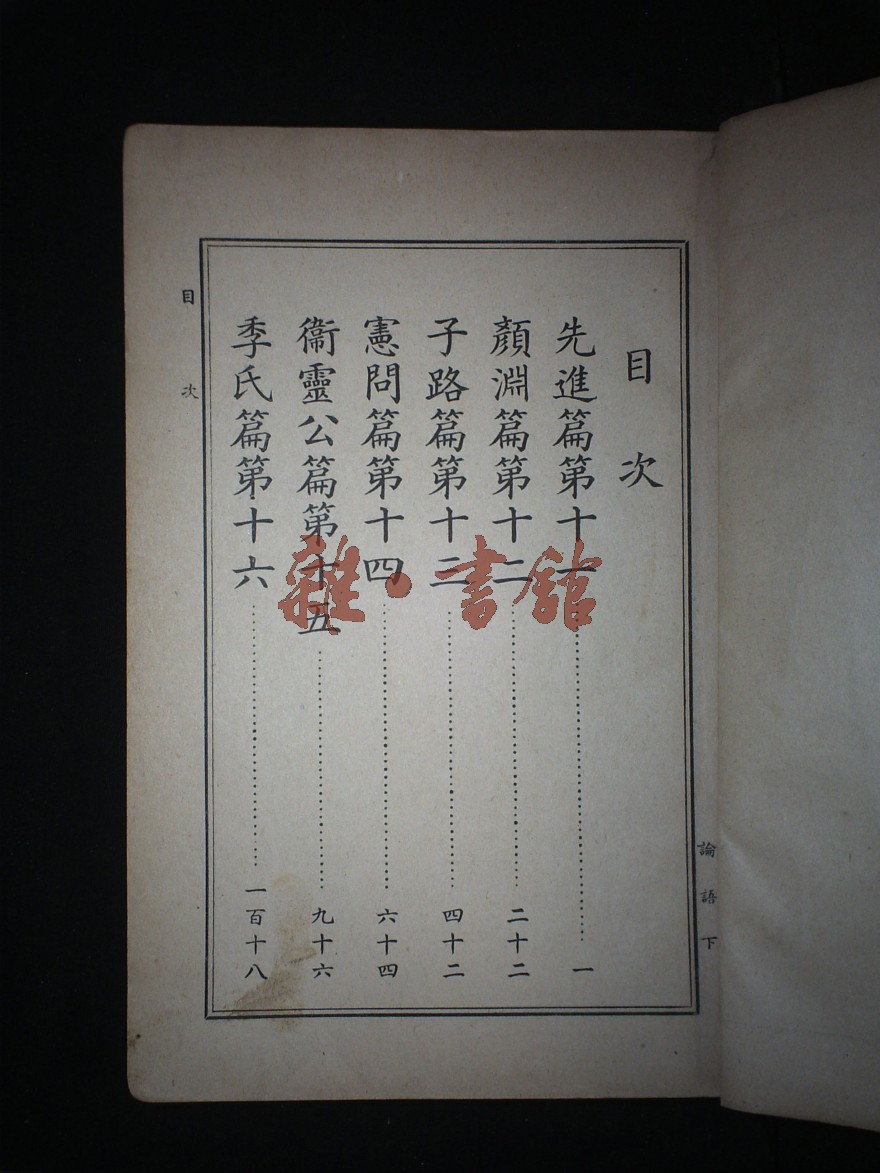 目次
先進篇第十一
一
顏淵篇第十二
二十二
子路篇第十三
四十二
憲問篇第十四
六十四
衞靈公篇第十五
九十六
季氏篇第十六
一百十八
目次
論語下
雜·書館